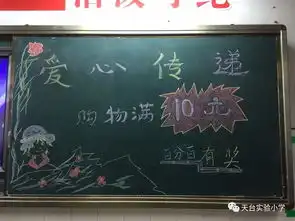 爱心传递
购物满10元
百分百有奖
天台实验小学